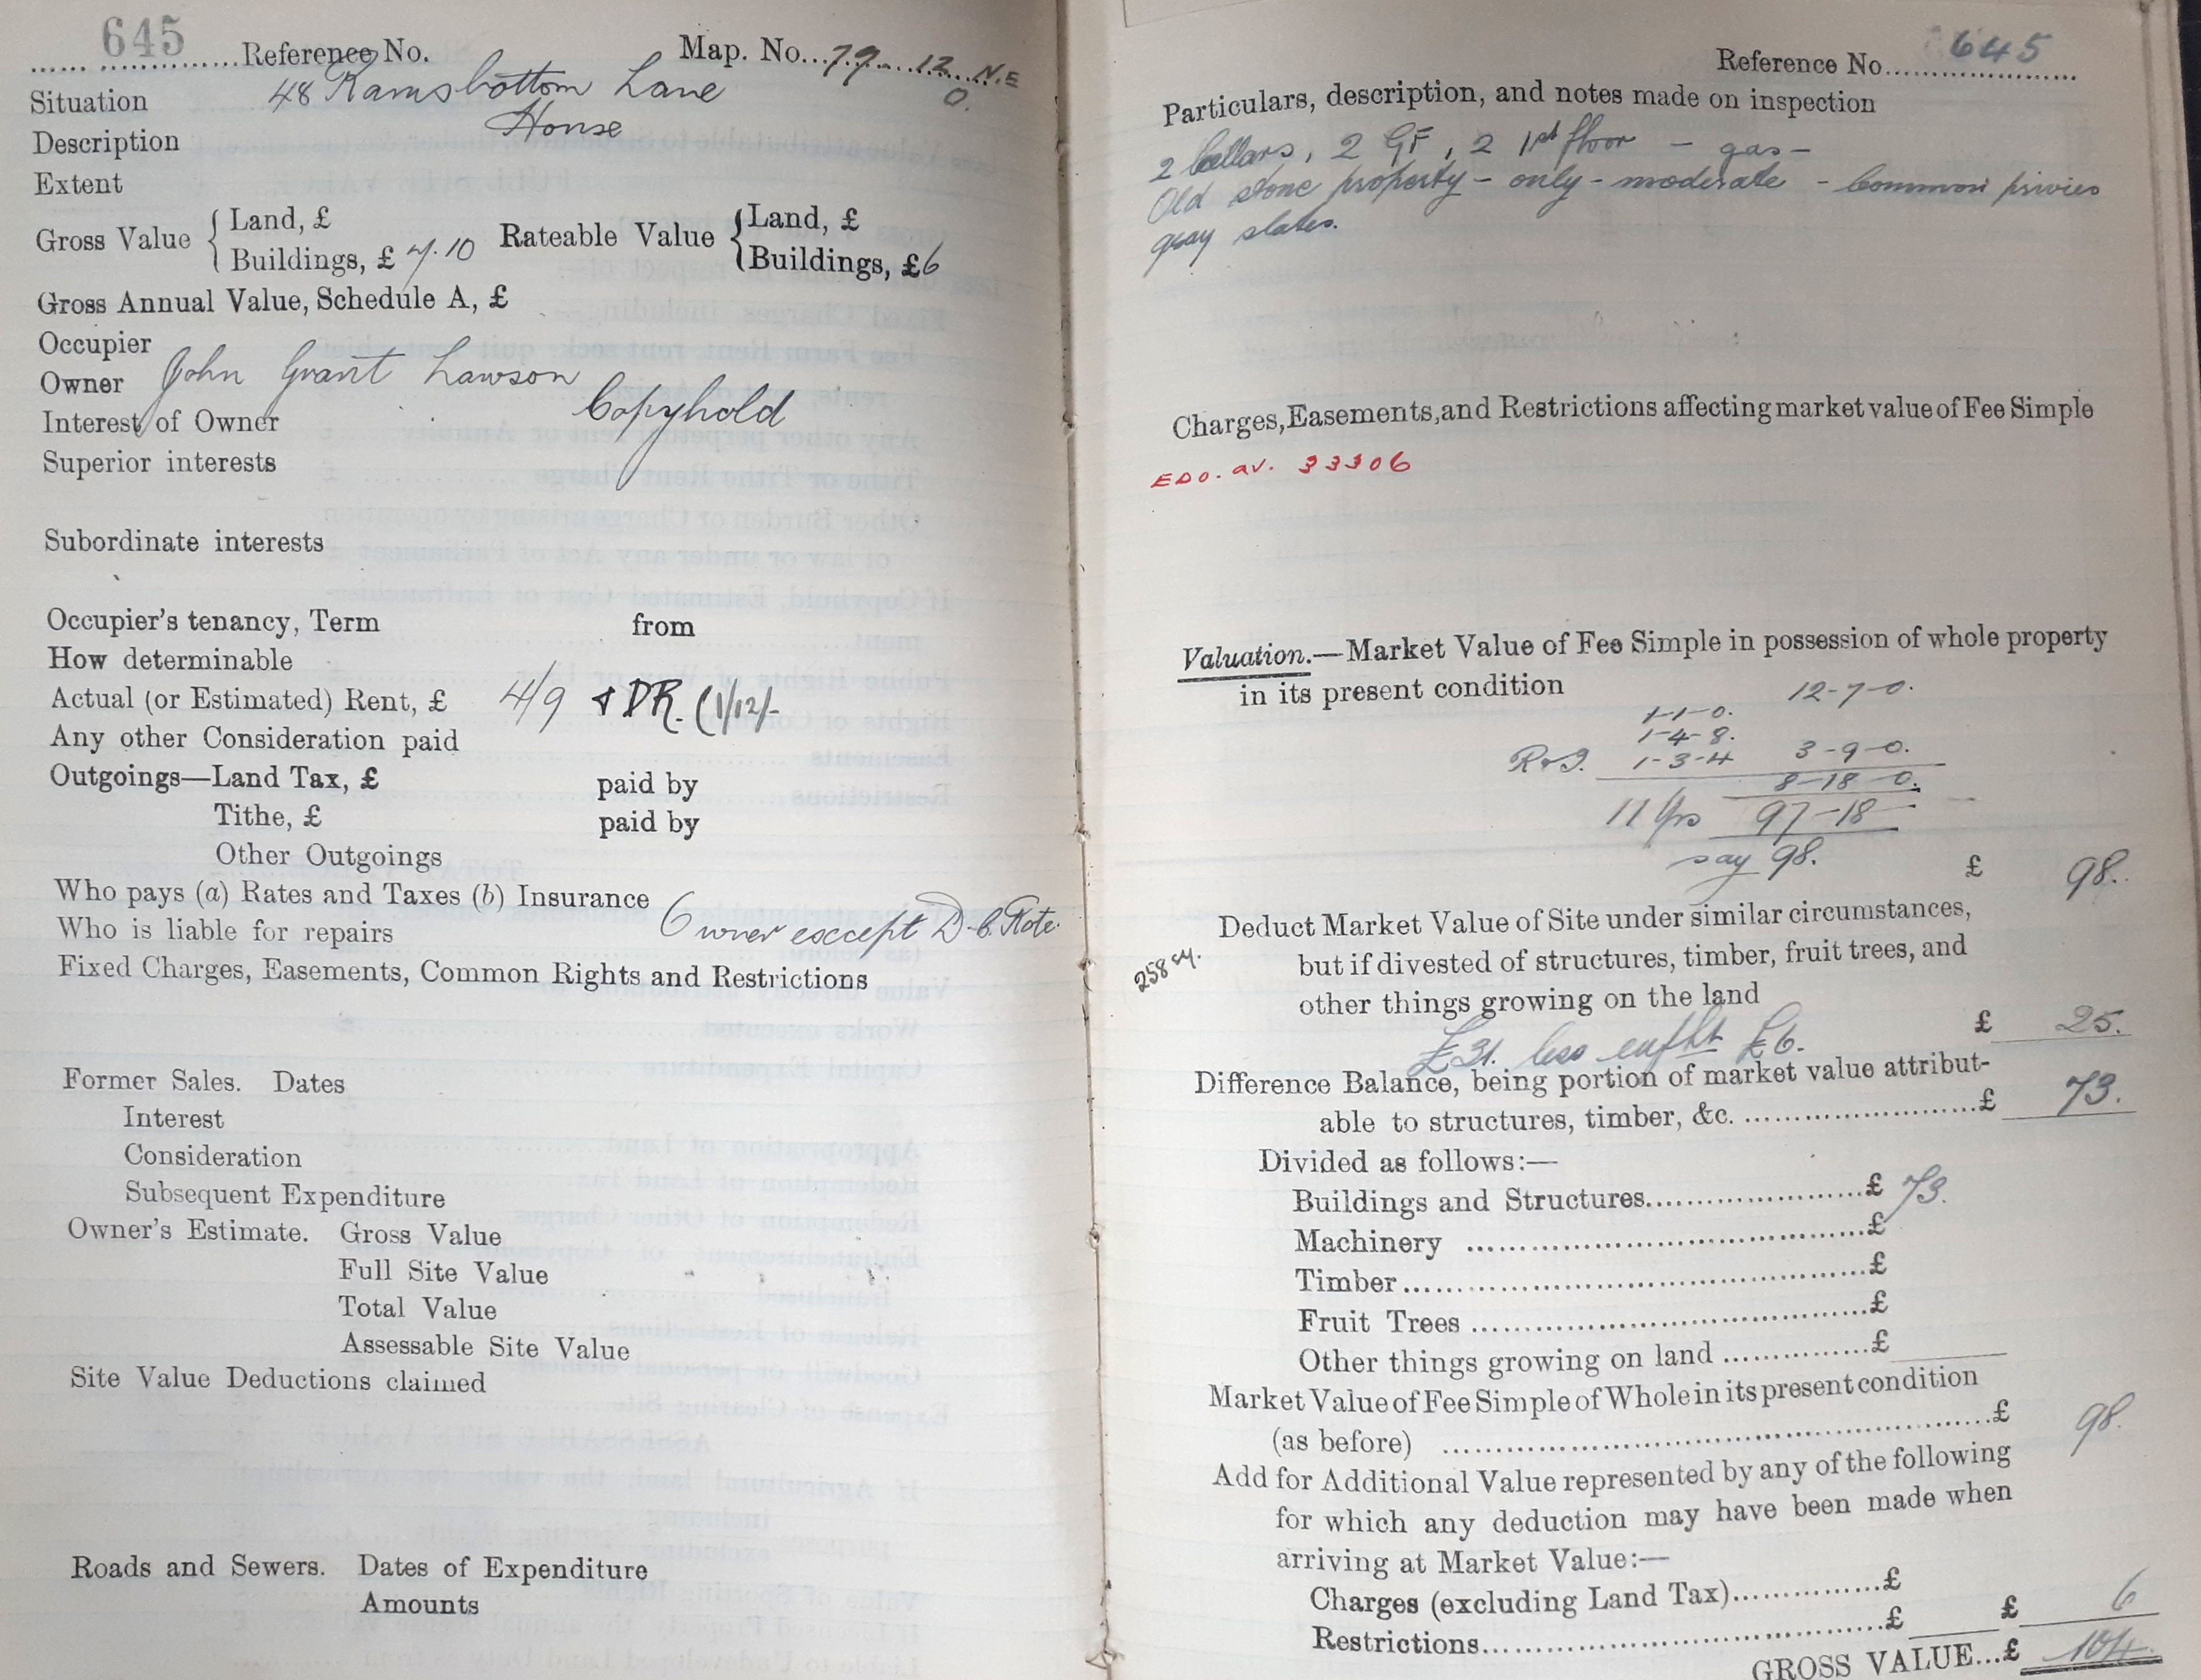 645 Reference No. Map. No. 79. 12 N.E
O.
Situation 48 Ramsbottom Lane
Description House
Extent
Gross Value { Land, £ Rateable Value { Land, £
Buildings, £ 7.10 Buildings, £6
Gross Annual Value, Schedule A, £
Occupier
Owner John Grant Lawson
Interest of Owner Copyhold
Superior interests
Subordinate interests
Occupier's tenancy, Term from
How determinable
Actual (or Estimated) Rent, £ 4/9 & DR. (1/12/-
Any other Consideration paid
Outgoings—Land Tax, £ paid by
Tithe, £ paid by
Other Outgoings
Who pays (a) Rates and Taxes (b) Insurance
Who is liable for repairs Owner except D.C. Rate.
Fixed Charges, Easements, Common Rights and Restrictions
Former Sales. Dates
Interest
Consideration
Subsequent Expenditure
Owner's Estimate. Gross Value
Full Site Value
Total Value
Assessable Site Value
Site Value Deductions claimed
Roads and Sewers. Dates of Expenditure
Amounts
Reference No. 645
Particulars, description, and notes made on inspection
2 Cellars, 2 GF, 2 1st floor - gas -
Old stone property - only - moderate - Common privies
gray slates.
Charges, Easements, and Restrictions affecting market value of Fee Simple
EDO. av. 33306
Valuation.—Market Value of Fee Simple in possession of whole property
in its present condition 12-7-0.
1-1-0.
1-4-8.
1-3-4 3-9-0.
8-18-0.
11 Yrs 97-18
say 98.
£ 98.
Deduct Market Value of Site under similar circumstances,
258 sy. but if divested of structures, timber, fruit trees, and
other things growing on the land
£31. less enfht £6. £ 25.
Difference Balance, being portion of market value attribut-
able to structures, timber, &c. £ 73.
Divided as follows:—
Buildings and Structures £ 73.
Machinery £
Timber £
Fruit Trees £
Other things growing on land £
Market Value of Fee Simple of Whole in its present condition
(as before) £ 98.
Add for Additional Value represented by any of the following
for which any deduction may have been made when
arriving at Market Value:—
Charges (excluding Land Tax) £
Restrictions £ £ 6
GROSS VALUE...£ 104